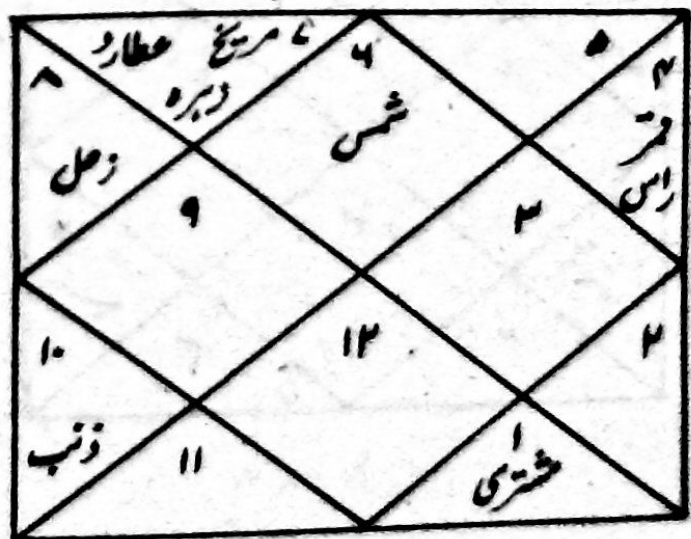 ۷ مریخ عطارد
زہرہ
۶
شمس
۵
۴
قمر
راس
۸
زحل
۹
۳
۱۰
ذنب
۱۲
۲
۱۱
۱
مشتری